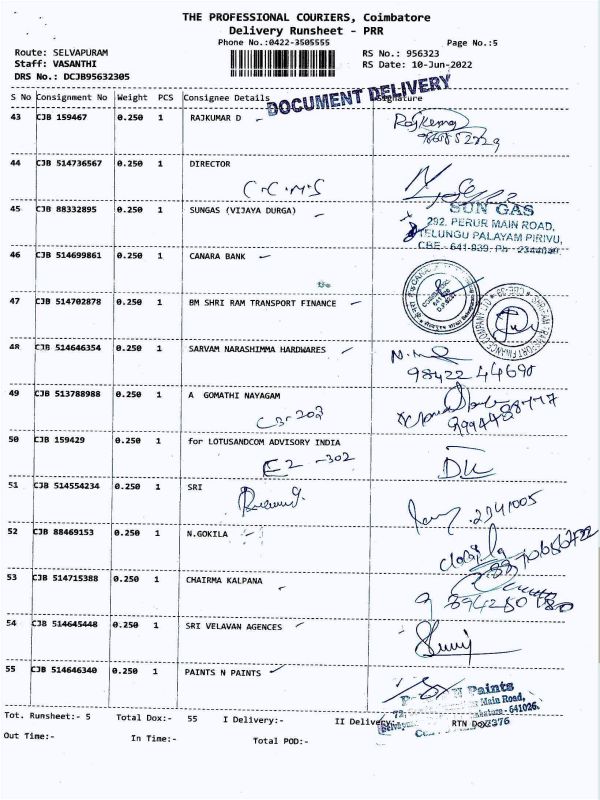 THE PROFESSIONAL COURIERS, Coimbatore
Delivery Runsheet - PRR
Phone No.:0422-3505555
Page No.:5
Route: SELVAPURAM
RS No.: 956323
Staff: VASANTHI
RS Date: 10-Jun-2022
DRS No.: DCJB95632305
DOCUMENT DELIVERY
S No Consignment No Weight PCS Consignee Details Signature
43 CJB 159467 0.250 1 RAJKUMAR D
44 CJB 514736567 0.250 1 DIRECTOR
C.C.M.S
45 CJB 88332895 0.250 1 SUNGAS (VIJAYA DURGA)
SUN GAS
292, PERUR MAIN ROAD,
TELUNGU PALAYAM PIRIVU,
CBE - 641 039. Ph
46 CJB 514699861 0.250 1 CANARA BANK
47 CJB 514702878 0.250 1 BM SHRI RAM TRANSPORT FINANCE
48 CJB 514646354 0.250 1 SARVAM NARASHIMMA HARDWARES
98422 44690
49 CJB 513788988 0.250 1 A GOMATHI NAYAGAM
C3-203
50 CJB 159429 0.250 1 for LOTUSANDCOM ADVISORY INDIA
E2 -302
51 CJB 514554234 0.250 1 SRI
2341005
52 CJB 88469153 0.250 1 N.GOKILA
53 CJB 514715388 0.250 1 CHAIRMA KALPANA
54 CJB 514645448 0.250 1 SRI VELAVAN AGENCES
55 CJB 514646340 0.250 1 PAINTS N PAINTS
N Paints
Main Road,
641026.
Tot. Runsheet:- 5 Total Dox:- 55 I Delivery:- II Delivery:- RTN Dox
Out Time:- In Time:- Total POD:-